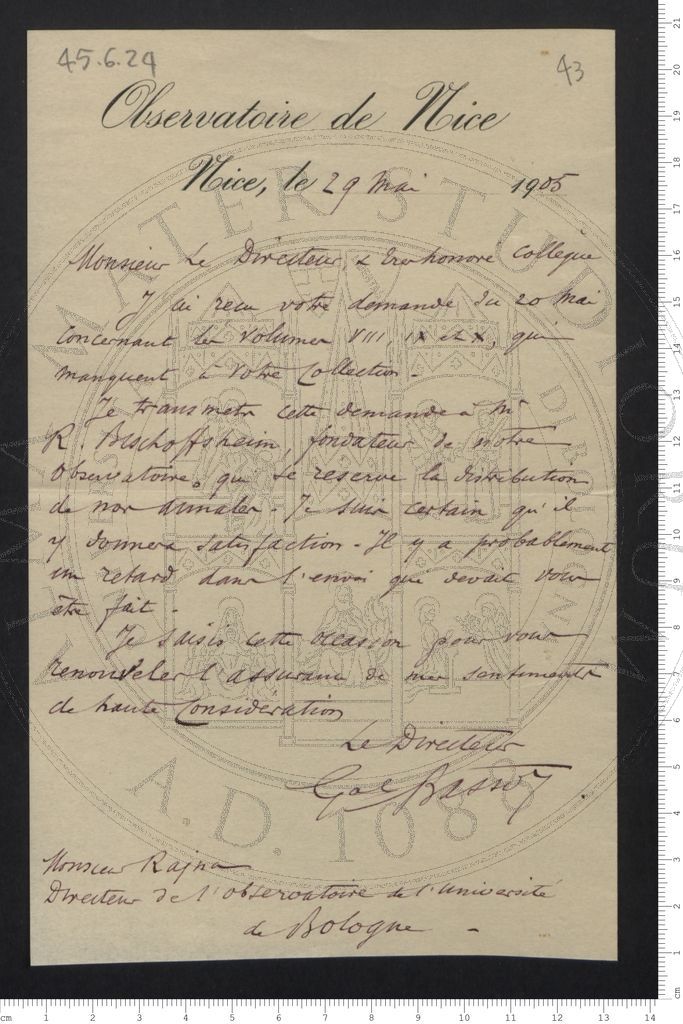 45.6.24
43
Observatoire de Nice
Nice, le 29 Mai 1905
Monsieur Le Directeur, & tres honoré Collègue
J'ai reçu votre demande du 20 Mai
concernant les volumes VIII, IX et X, qui
manquent à votre Collection -
Je transmets cette demande à Mr
R Bischoffsheim, fondateur de notre
Observatoire, qui se reserve la distribution
de nos Annales - Je suis certain qu'il
y donnera satisfaction - Il y a probablement
un retard dans l'envoi qui devait vous
être fait -
Je saisis cette occasion pour vous
renouveler l'assurance de mes sentiments
de haute Considération
Le Directeur
Gal Bassot
Monsieur Rajna
Directeur de l'observatoire de l'université
de Bologne -
ALMA MATER STUDIORUM
A.D. 1088